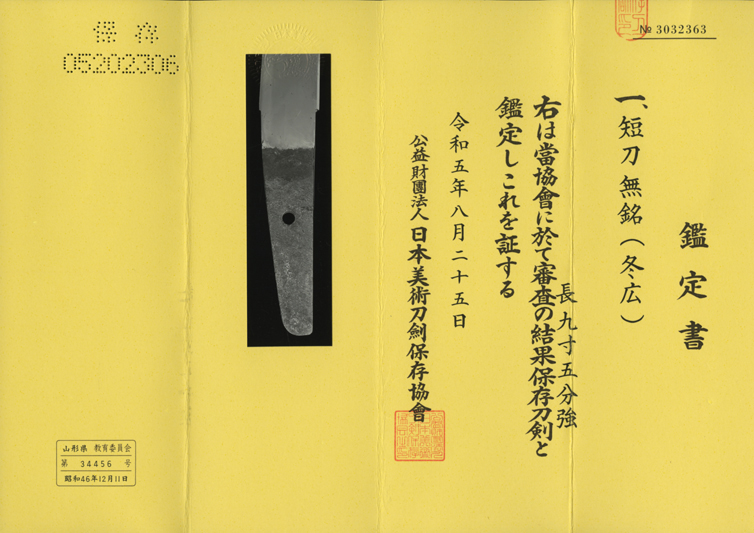 № 3032363
鑑定書
一、短刀 無銘(冬広)
長九寸五分強
右は當協會に於て審査の結果保存刀剣と
鑑定しこれを証する
令和五年八月二十五日
公益財團法人 日本美術刀劍保存協會
保存
05202306
山形県 教育委員会
第 34456 号
昭和46年12月11日